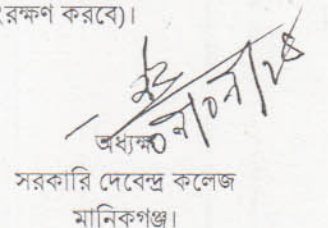 রক্ষণ করবে)।
অধ্যক্ষ
সরকারি দেবেন্দ্র কলেজ
মানিকগঞ্জ।